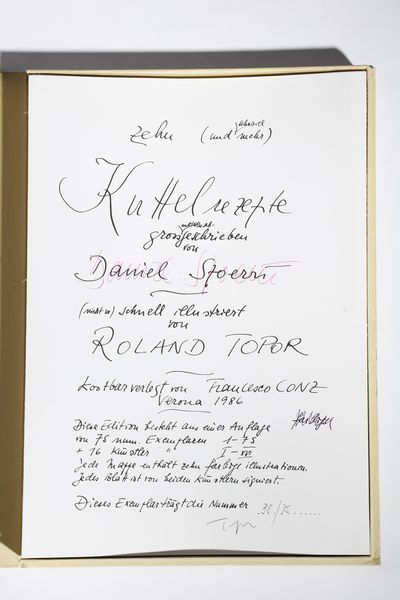 zehn (und mehr)
Kuttelrezepte
grossgeschrieben
von
Daniel Spoerri
(nicht zu) schnell illustriert
von
ROLAND TOPOR
kostbar verlegt von Francesco CONZ
Verona 1986
Diese Edition besteht aus einer Auflage
von 75 num. Exemplaren 1-75
+ 16 Künstler " I-XVI
jede Mappe enthält zehn farbige illustrationen.
Jedes Blatt ist von beiden Künstlern signiert.
Dieses Exemplar trägt die Nummer 38/75......
Topor